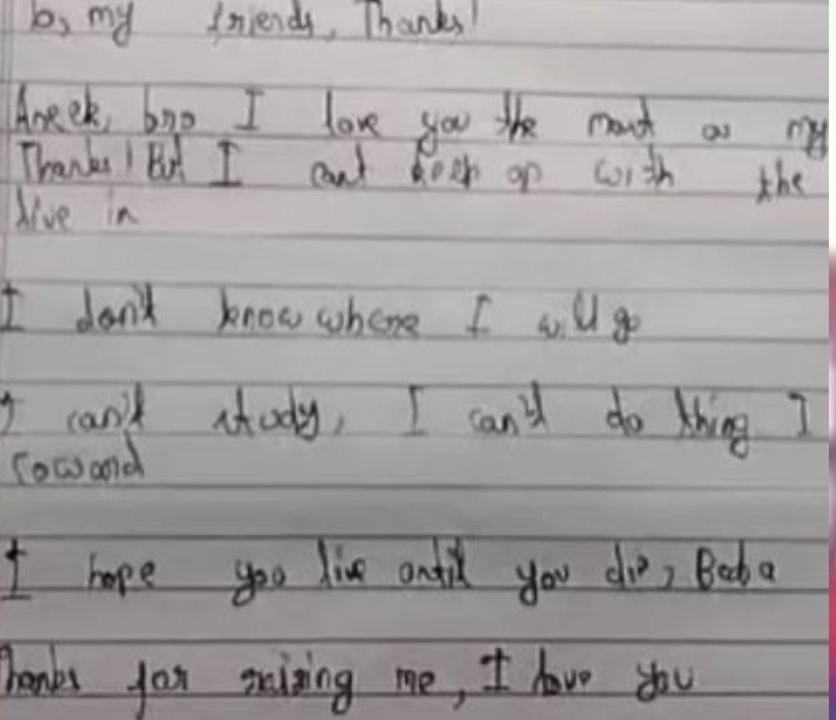 to, my friends, Thanks!
Aneek, bro I love you the most as my
Thanks! But I cant keep up with the
live in
I don't know where I will go
I can't study, I can't do thing I
coward
I hope you live until you die, Baba
Thanks for raising me, I love you